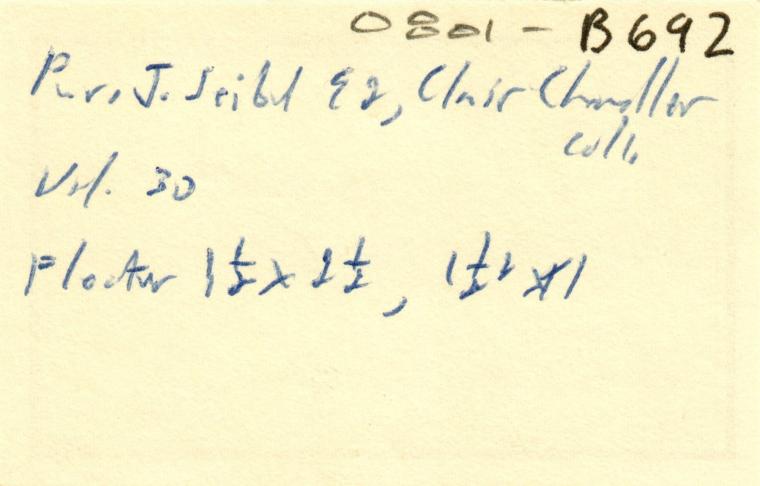 0801 - B692
Pur. J. Seibel 92, Clair Chandler
coll.
Vol. 30
Floater 1½ x 2½, 1½ x 1